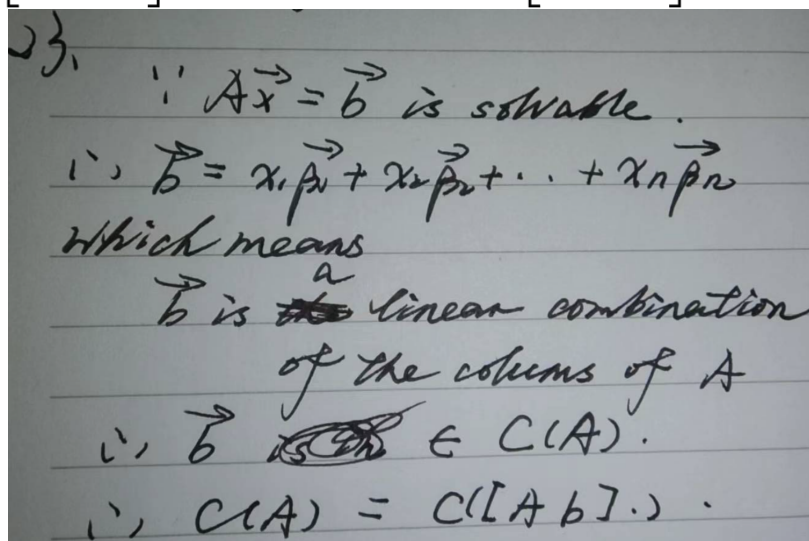 23.
∵ Ax⃗ = b⃗ is solvable.
∴ b⃗ = x₁β₁⃗ + x₂β₂⃗ + ... + xₙβₙ⃗
which means
b⃗ is a linear combination
of the colums of A
∴ b⃗ ∈ C(A).
∴ C(A) = C([A b].) .